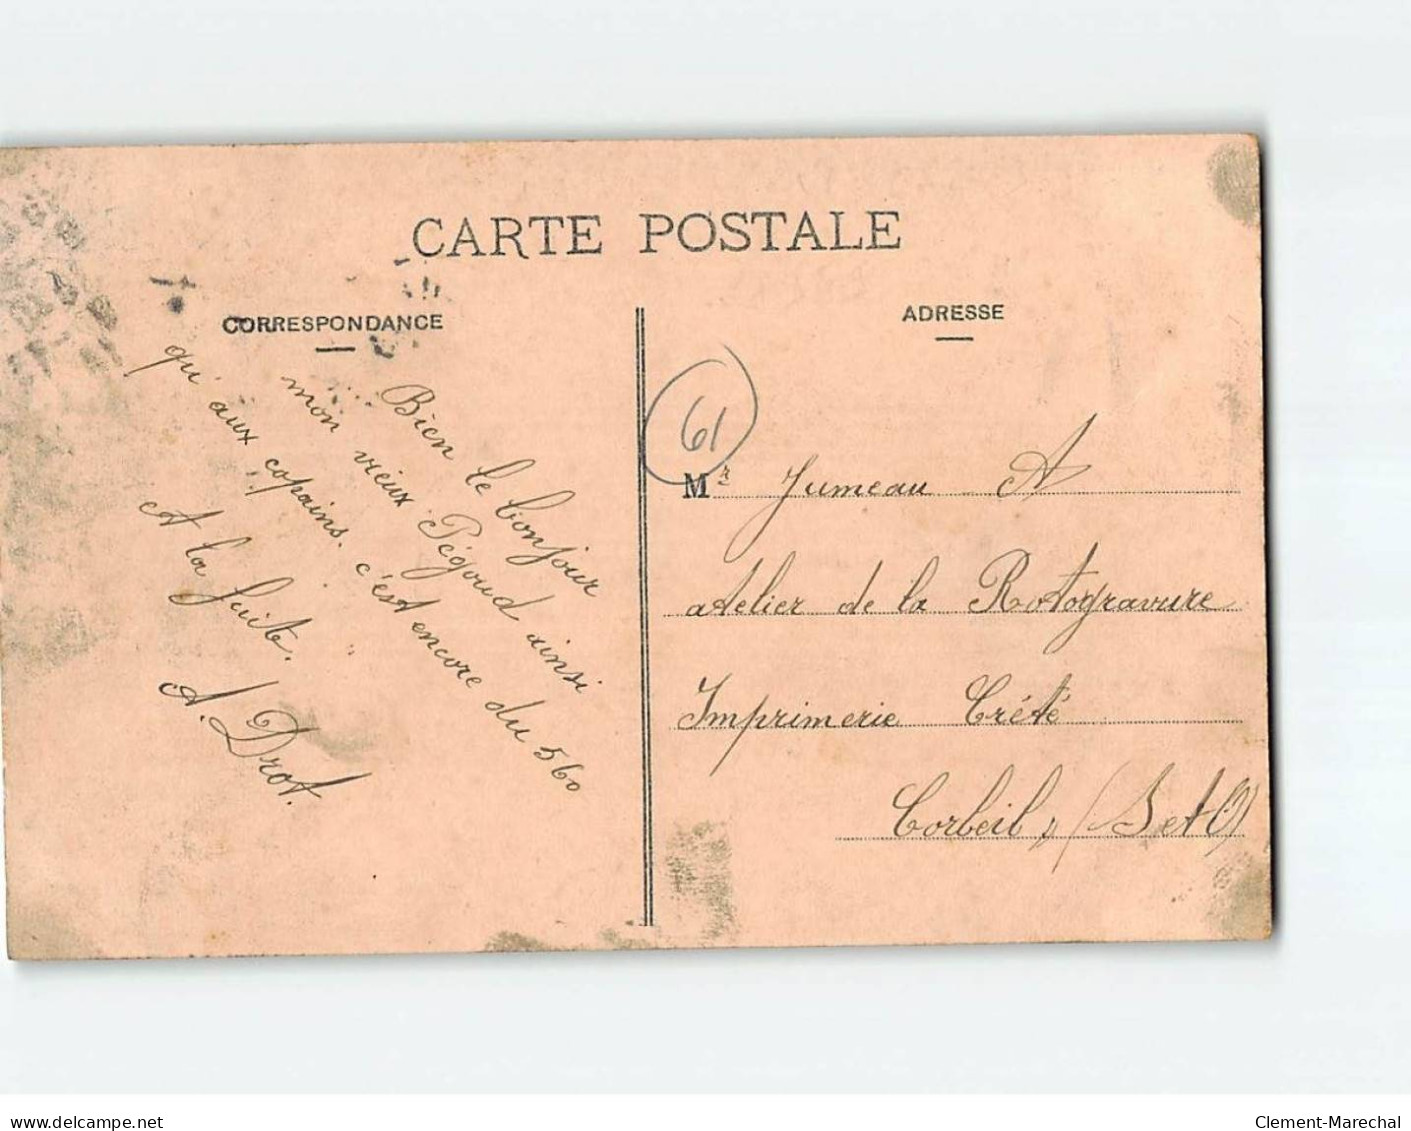 CARTE POSTALE
CORRESPONDANCE
Bien le bonjour
mon vieux Pégoud ainsi
qu'aux copains. c'est encore du 560
A la fuite.
A. Drot.
ADRESSE
61
Mr Jumeau A
atelier de la Rotogravure
Imprimerie Crété
Corbeil, (S et O)
www.delcampe.net
Clement-Marechal